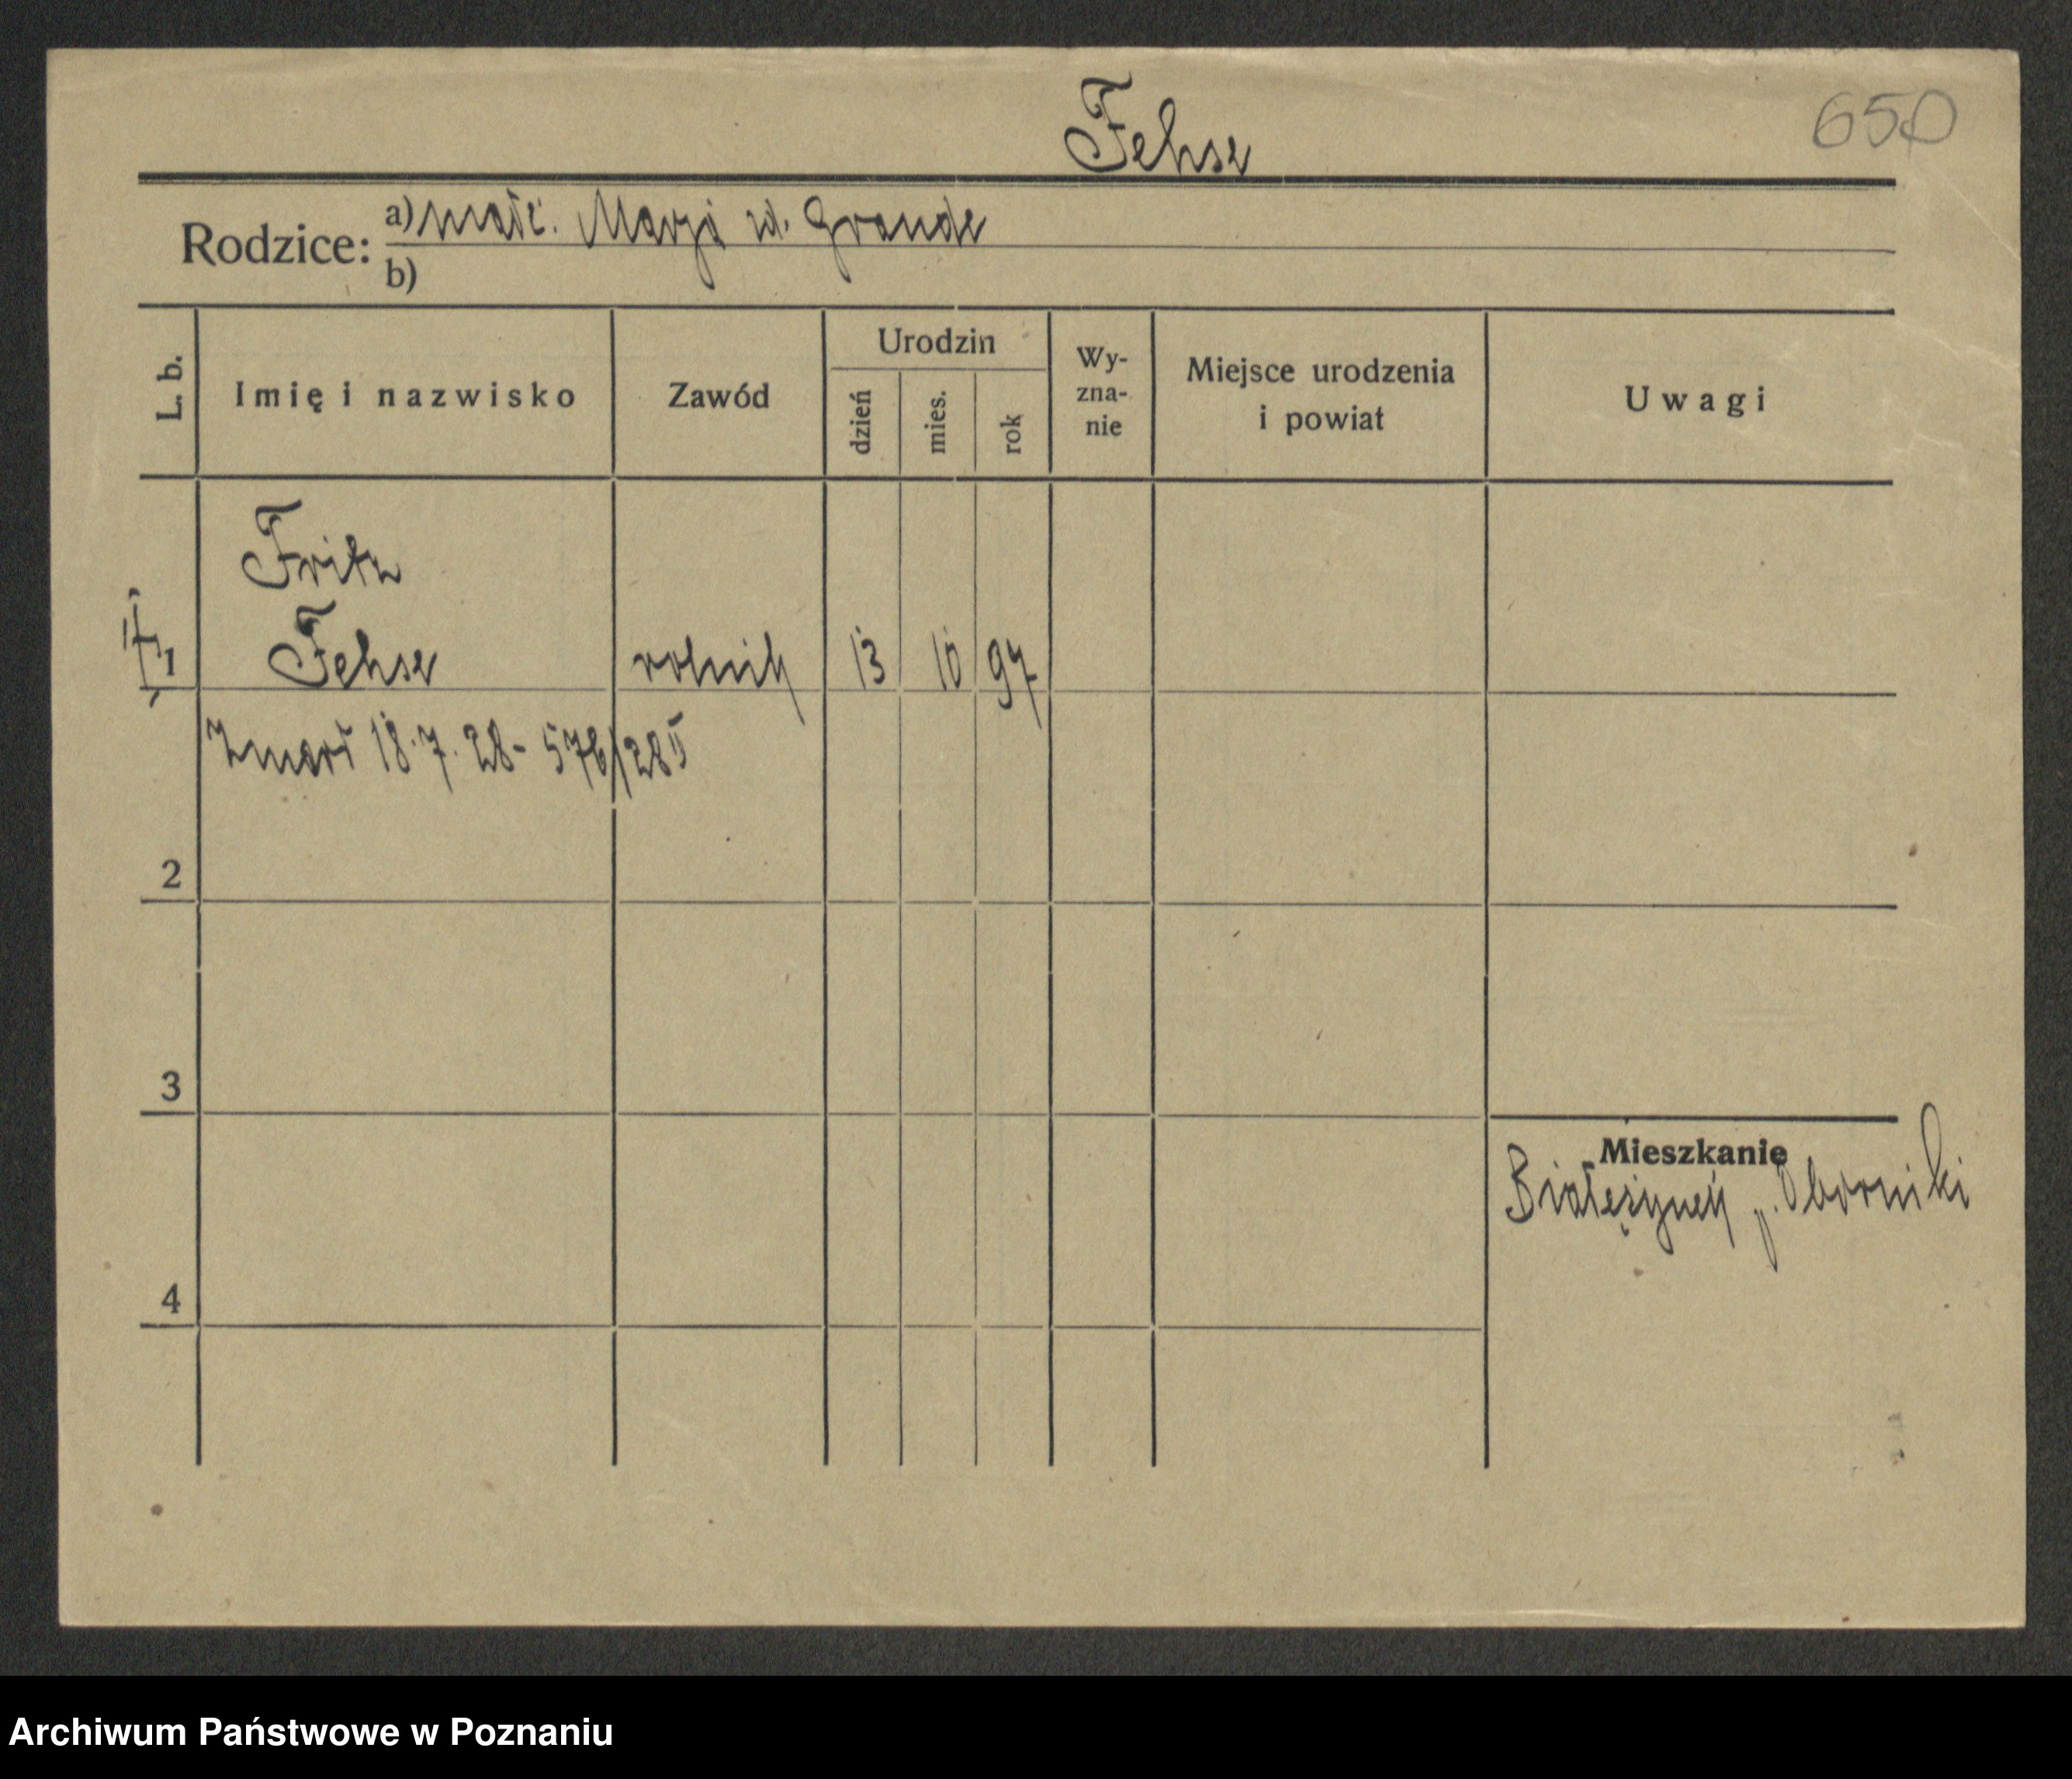 Fehse
650
Rodzice: a) małż. Marja zd. Grande
b)
L. b.
Imię i nazwisko
Zawód
Urodzin
dzień
mies.
rok
Wy-
zna-
nie
Miejsce urodzenia
i powiat
Uwagi
Fritz
1 Fehse rolnik 13 10 97
Zmarł 18.7.28 - 576/28 II
2
3
Mieszkanie
Białężyn p. Oborniki
4
Archiwum Państwowe w Poznaniu